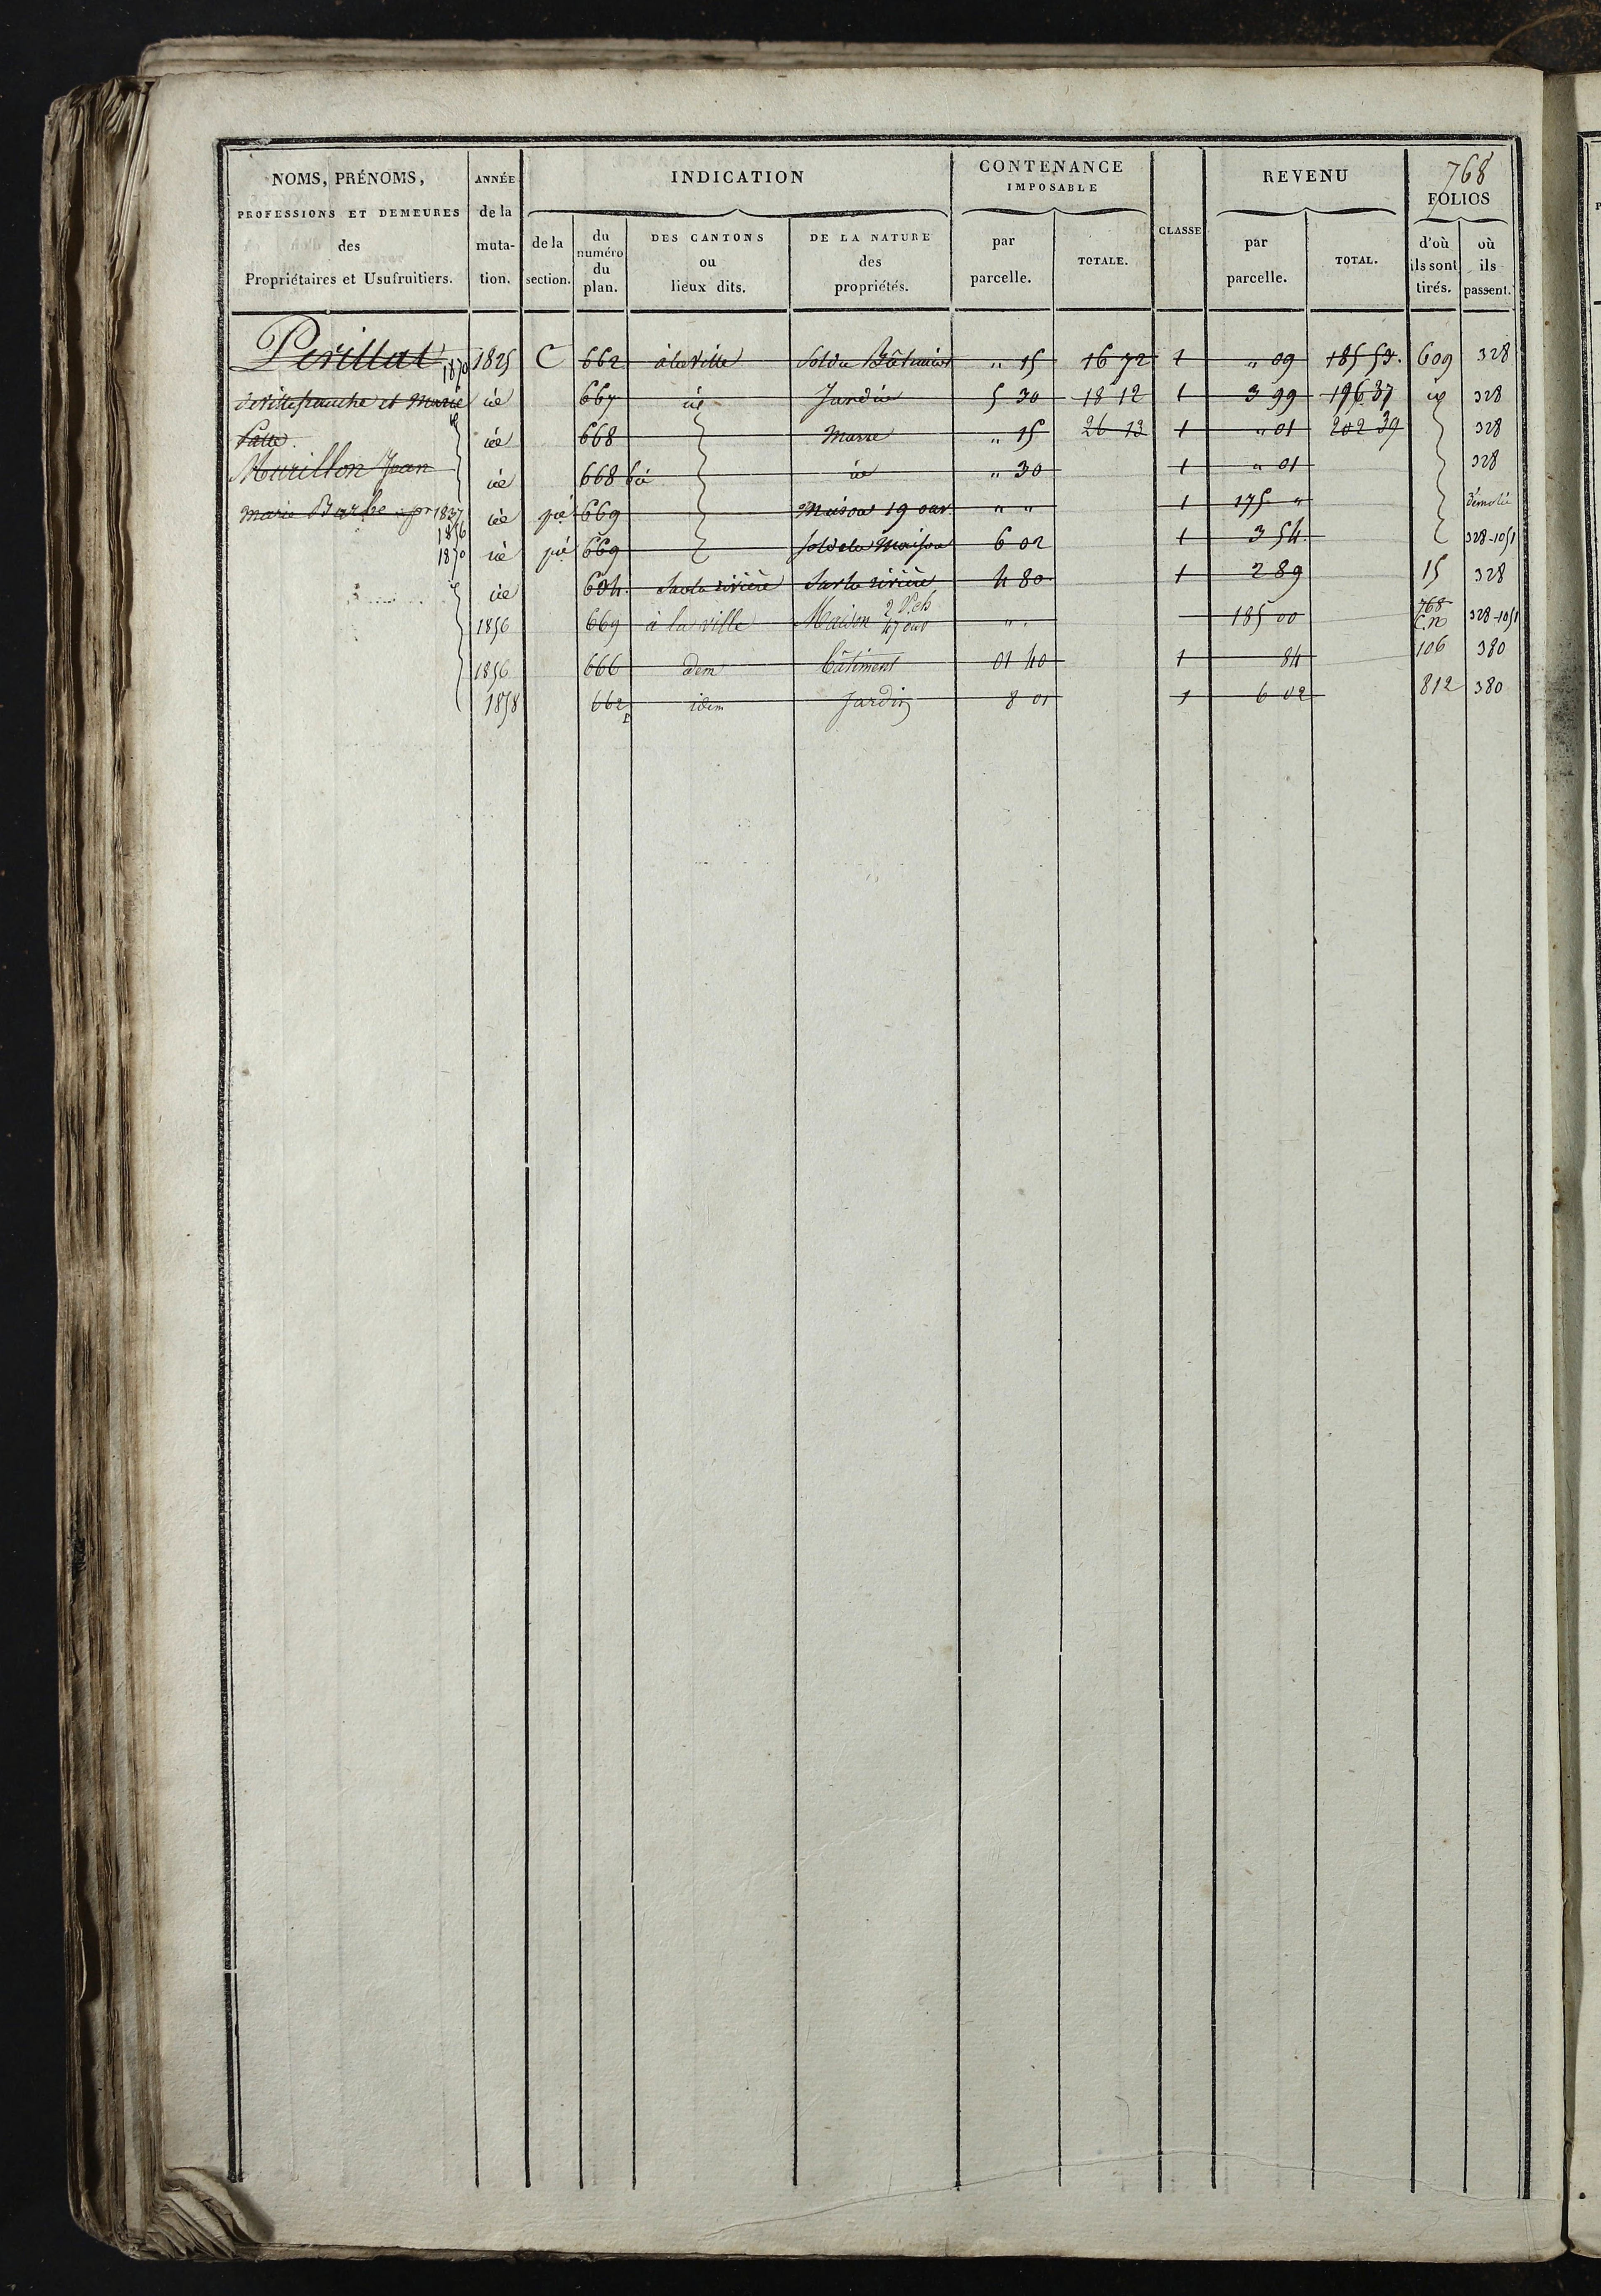 768
NOMS, PRÉNOMS, PROFESSIONS ET DEMEURES des Propriétaires et Usufruitiers.
ANNÉE de la muta-tion.
INDICATION
de la section.
du numéro du plan.
DES CANTONS ou lieux dits.
DE LA NATURE des propriétés.
CONTENANCE IMPOSABLE
par parcelle.
TOTALE.
CLASSE
REVENU
par parcelle.
TOTAL.
FOLIOS
d'où ils sont tirés.
où ils passent.
Perillat 1870 1825 C 662 à la ville Sol du Bâtiment " 15 16 72 1 " 09 185 53. 609 328
de villefranche et Marie id 667 id Jardin 5 30 18 12 1 3 99 196 37 id 328
id 668 Masse " 15 26 13 1 " 01 202 39 328
Murillon Jean id 668 bis id " 30 1 " 01 328
Marie Barbe pr 1837 id pie 669 Maison 19 ouv. " " 1 175 " Démolie
1856
1870 id pie 669 Sol de la Maison 6 02 1 3 54. 328-1051
id 604. Sur la rivière Sur la rivière 4 80 1 2 89 15 328
1856 669 à la ville Maison 2 P.ch 47 ouv " . 185 00 768 C.n 328-1051
1856 666 dem Bâtiment 01 40 1 84 106 380
1858 662 P idem Jardin 8 01 1 6 02 812 380